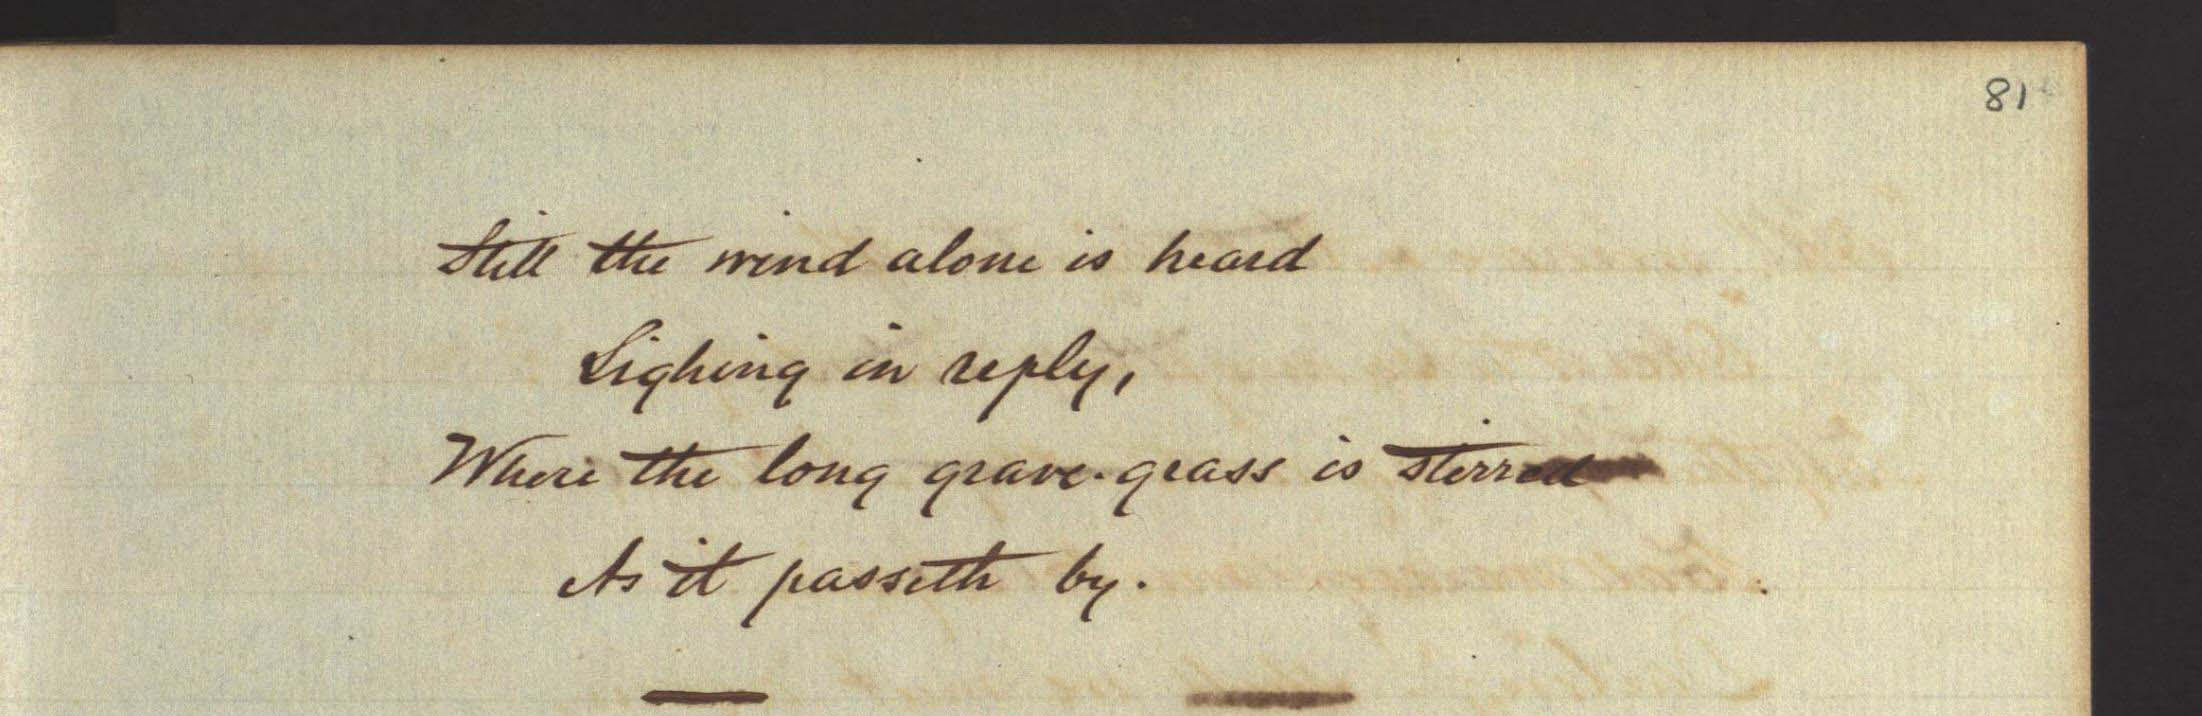 81
Still the wind alone is heard
Sighing in reply,
Where the long grave-grass is stirred
As it passeth by.